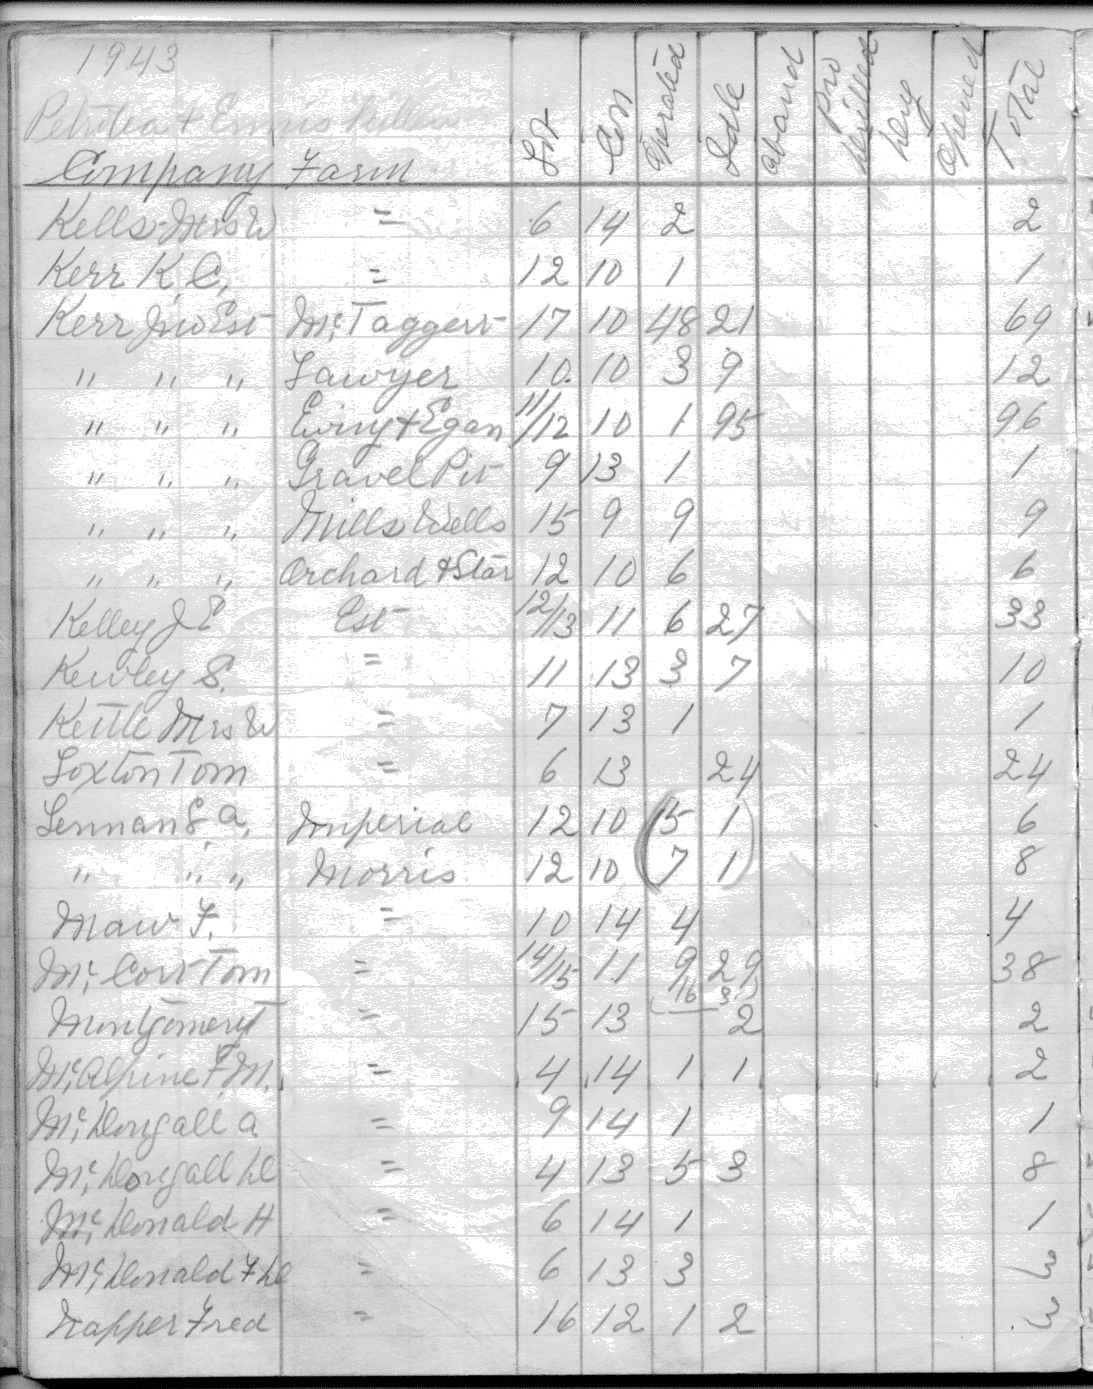 1943
Petrolea + Enniskillen
Company Farm Lot Con Operated Idle Aband Pro Drilled Dry Opened Total
Kells Mrs W = 6 14 2 2
Kerr K.C. = 12 10 1 1
Kerr Jno Est McTaggert 17 10 48 21 69
" " " Sawyer 10 10 3 9 12
" " " Ewing + Egan 11/12 10 1 95 96
" " " Gravel Pit 9 13 1 1
" " " Mills Wells 15 9 9 9
" " " Orchard + Star 12 10 6 6
Kelley J E Est 12/13 11 6 27 33
Kewley S. = 11 13 3 7 10
Kettle Mrs W = 7 13 1 1
Loxton Tom = 6 13 24 24
Lennan & A. Imperial 12 10 (5 1) 6
" " " Morris 12 10 (7 1) 8
Maw F. = 10 14 4 4
Mc Cort Tom = 14/15 11 9 29 38
16 3
Montgomery T = 15 13 2 2
McAlpine F.M. = 4 14 1 1 2
McDougall A = 9 14 1 1
McDougall D = 4 13 5 3 8
McDonald H = 6 14 1 1
McDonald F D = 6 13 3 3
Napper Fred = 16 12 1 2 3